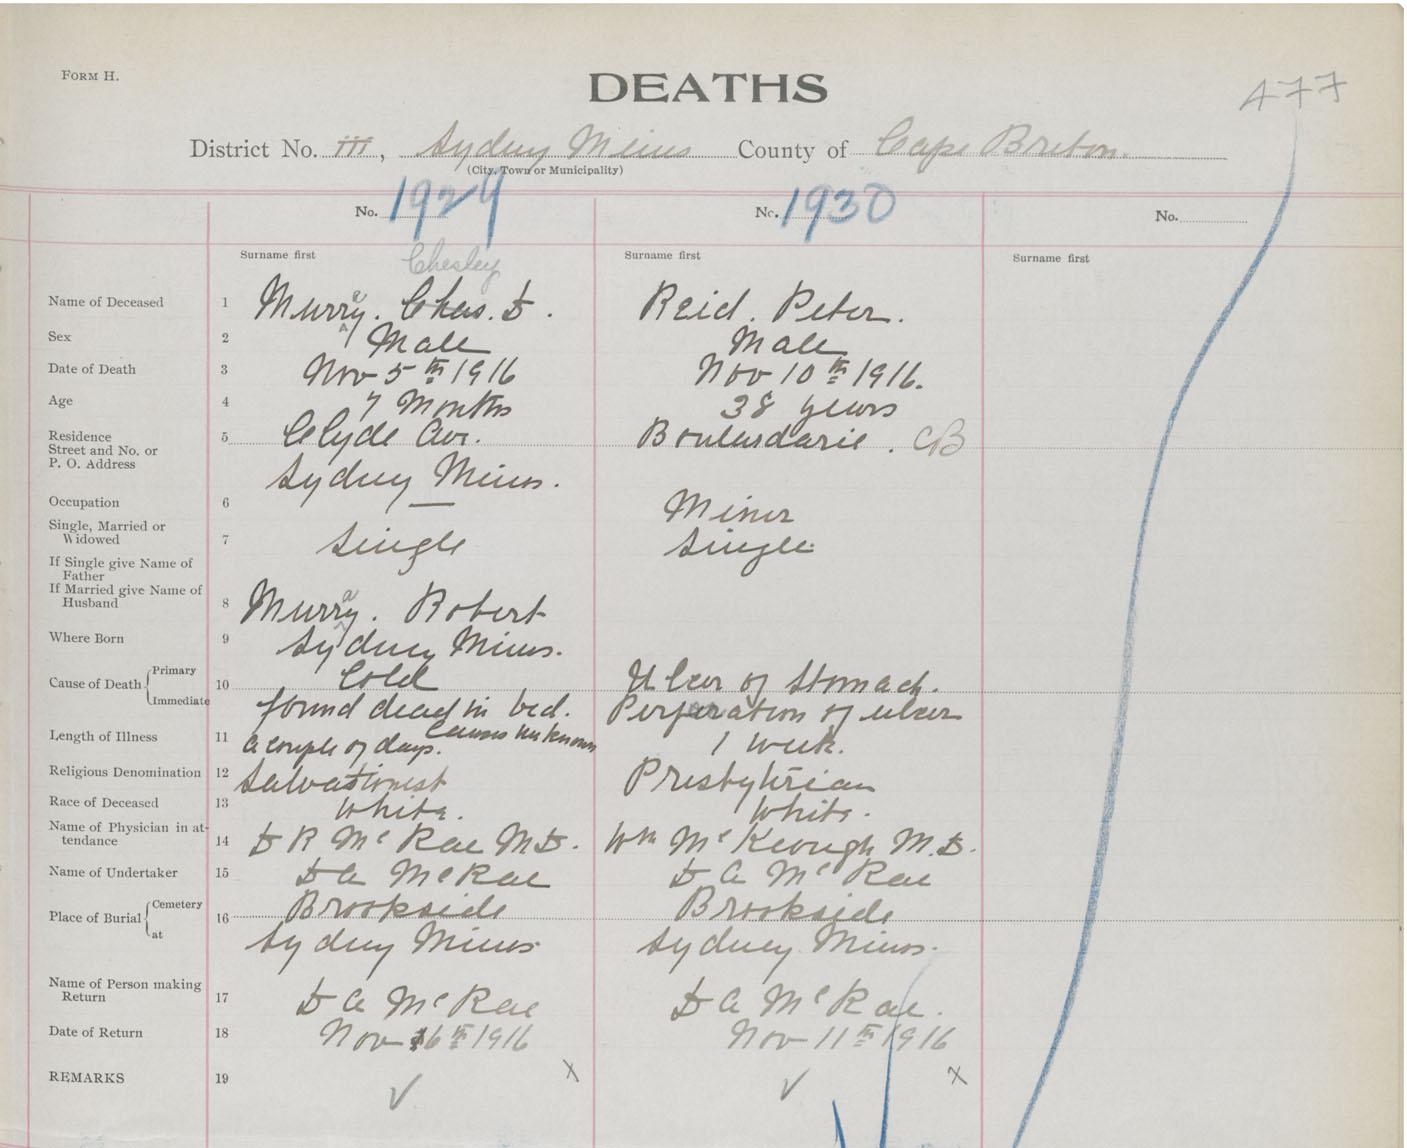 FORM H.
DEATHS
477
District No. III, Sydney Mines County of Cape Breton.
(City, Town or Municipality)
No. 1929 No. 1930 No.
Surname first Surname first Surname first
Chesley
Name of Deceased 1 Murray. Chas. D. Reid. Peter.
Sex 2 Male Male
Date of Death 3 Nov 5th 1916 Nov 10th 1916.
Age 4 7 Months 38 years
Residence 5 Clyde Ave. Boulardarie. CB
Street and No. or
P. O. Address Sydney Mines.
Occupation 6 — Miner
Single, Married or
Widowed 7 Single Single
If Single give Name of
Father
If Married give Name of
Husband 8 Murray. Robert
Where Born 9 Sydney Mines.
Cause of Death Primary 10 Cold Ulcer of Stomach.
Immediate found dead in bed. Perforation of ulcer
causes unknown
Length of Illness 11 A couple of days. 1 week.
Religious Denomination 12 Salvationist Presbyterian
Race of Deceased 13 White. White.
Name of Physician in at-
tendance 14 D R McRae M.D. Wm McKeough M.D.
Name of Undertaker 15 D A McRae D A McRae
Place of Burial Cemetery 16 Brookside Brookside
at Sydney Mines Sydney Mines.
Name of Person making
Return 17 D A McRae D A McRae.
Date of Return 18 Nov 6th 1916 Nov 11th 1916
REMARKS 19 ✓ x ✓ x